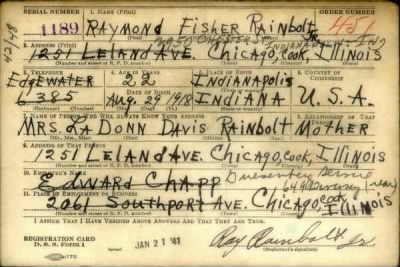 SERIAL NUMBER 1. NAME (Print) ORDER NUMBER
1189 RAYMOND FISHER RAINBOLT Jr. 451
42148
2. ADDRESS (Print) INDIANAPOLIS Ind
1251 LELAND AVE. CHICAGO, COOK, ILLINOIS
(Number and street or R. F. D. number) (Town) (County) (State)
3. TELEPHONE 4. AGE IN YEARS 5. PLACE OF BIRTH 6. COUNTRY OF CITIZENSHIP
EDGEWATER 22 INDIANAPOLIS
DATE OF BIRTH
6385 AUG. 29 1918 INDIANA U.S.A.
7. NAME OF PERSON WHO WILL ALWAYS KNOW YOUR ADDRESS 8. RELATIONSHIP OF THAT PERSON
MRS. LA DONN DAVIS RAINBOLT MOTHER
9. ADDRESS OF THAT PERSON
1251 LELAND AVE. CHICAGO, COOK, ILLINOIS
(Number and street or R. F. D. number) (Town) (County) (State)
10. EMPLOYER'S NAME
EDWARD CHAPP
11. PLACE OF EMPLOYMENT OR BUSINESS
2061 SOUTHPORT AVE. CHICAGO, COOK, ILLINOIS
(Number and street or R. F. D. number) (Town) (County) (State)
I AFFIRM THAT I HAVE VERIFIED ABOVE ANSWERS AND THAT THEY ARE TRUE.
REGISTRATION CARD
D. S. S. Form 1
JAN 21 '41
Ray Rainbolt Jr.